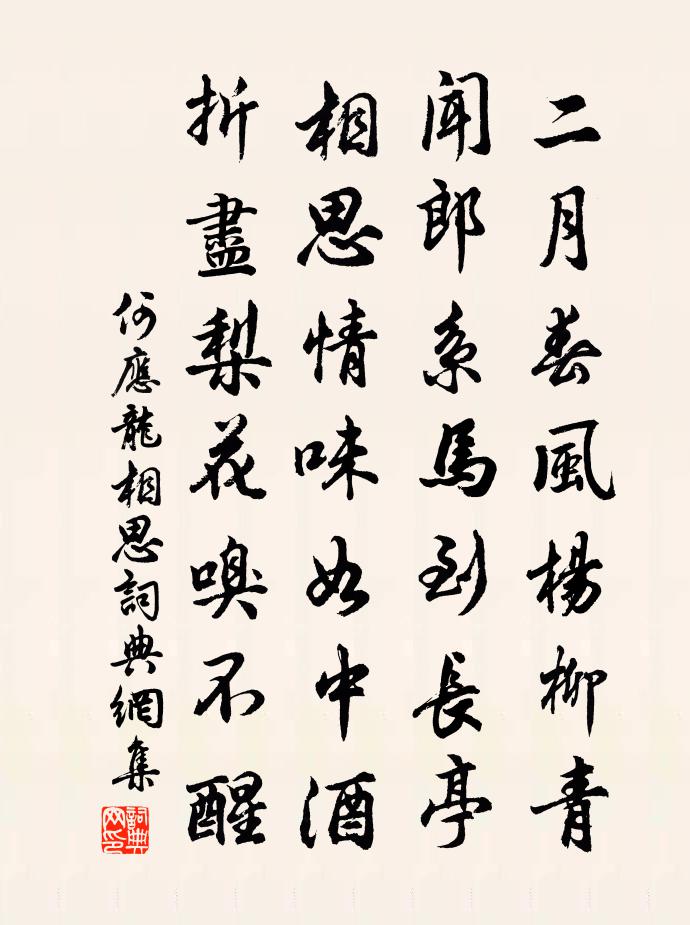 二月春風楊柳青
聞郎系馬到長亭
相思情味如中酒
折盡梨花嗅不醒
何應龍相思詞典網集
詞典網印